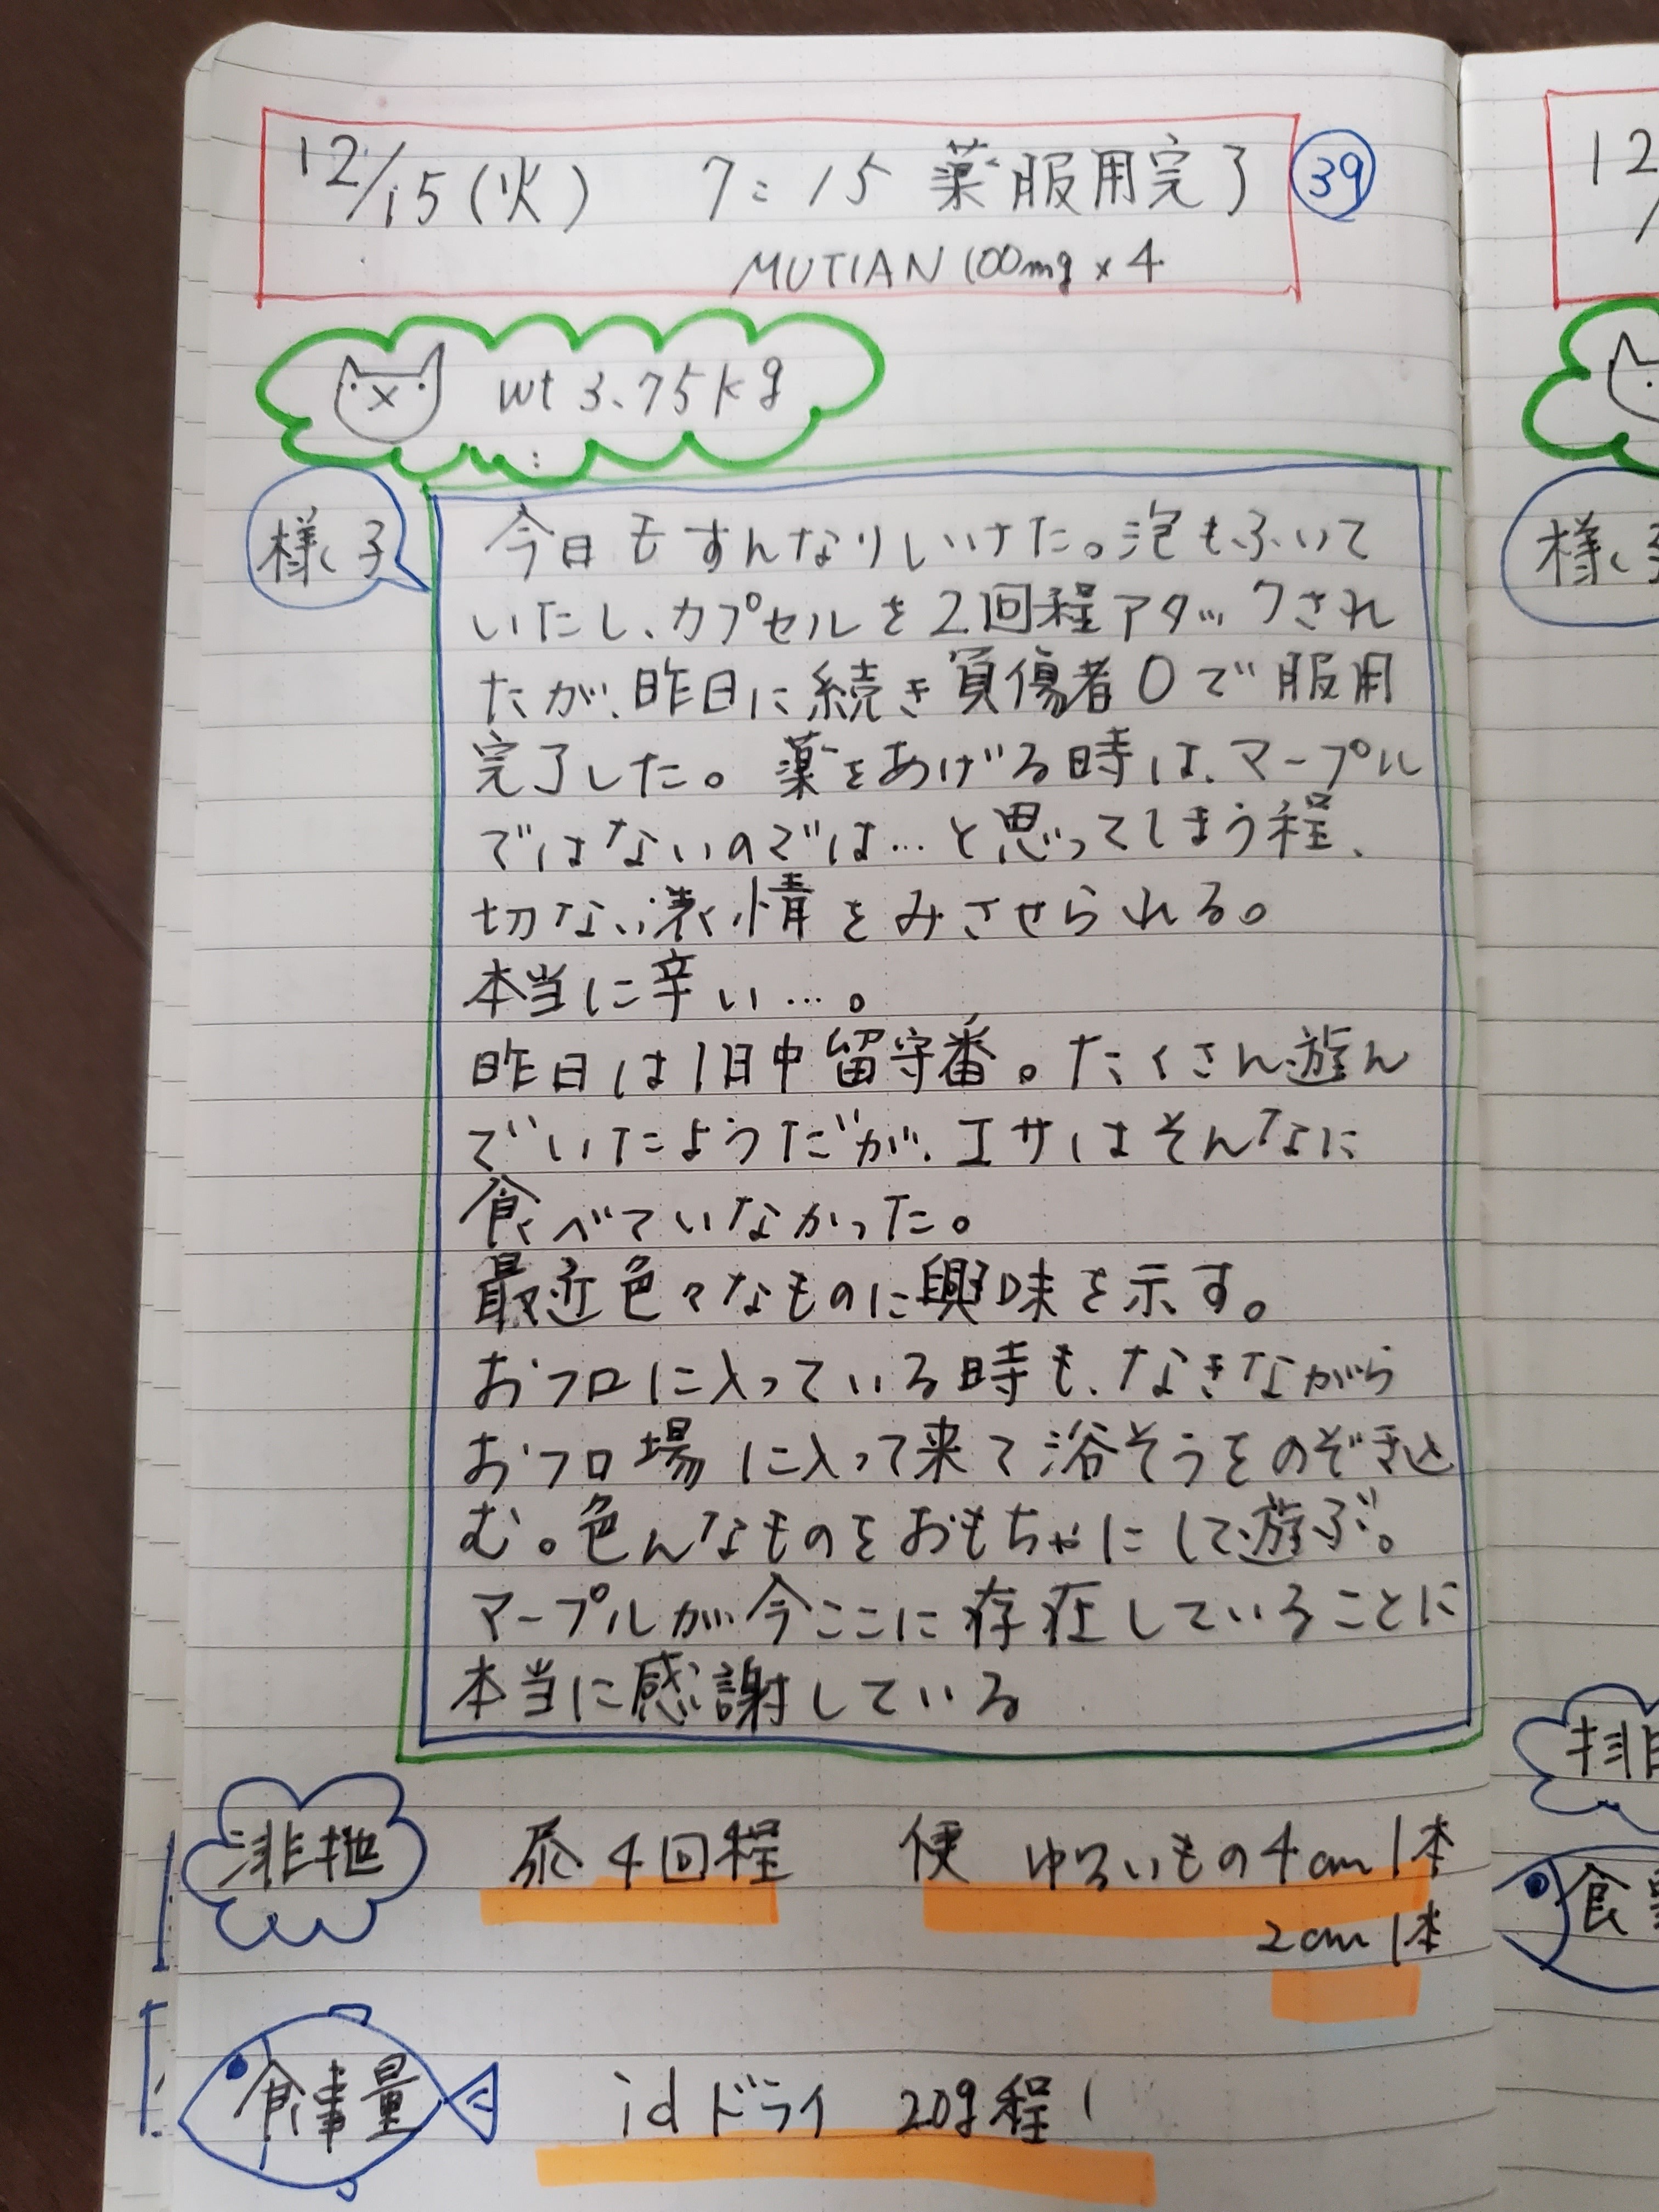 12/15(火) 7:15 薬服用完了 39
MUTIAN 100mg×4
wt 3.75kg
様子
今日もすんなりしいけた。泡もふいて
いたし、カプセルを2回程アタックされ
たが、昨日に続き負傷者0で服用
完了した。薬をあげる時は、マープル
ではないのでは…と思ってしまう程、
切ない表情をみさせられる。
本当に辛い…。
昨日は1日中留守番。たくさん遊ん
でいたようだが、エサはそんなに
食べていなかった。
最近色々なものに興味を示す。
おフロに入っている時も、なきながら
おフロ場に入って来て浴そうをのぞき込
む。色んなものをおもちゃにして遊ぶ。
マープルが今ここに存在していることに
本当に感謝している
排泄 尿4回程 便 ゆるいもの4cm1本
2cm1本
食事量 idドライ 20g程
12
様子
食